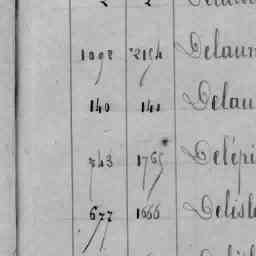 2154 Delaun
140 140 Delau
743 1765 Delépi
677 1666 Delisl